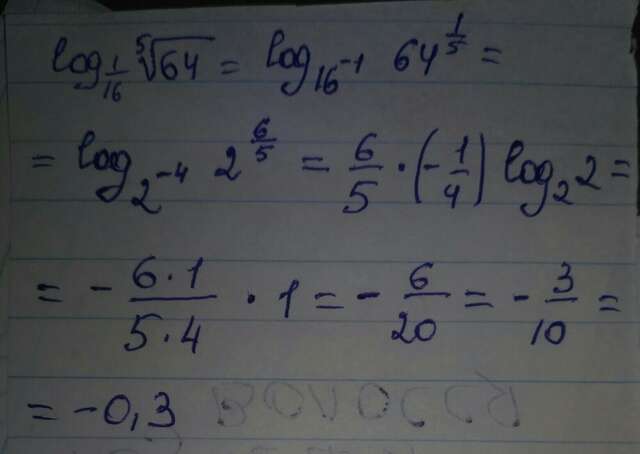 log_{1/16} ⁵√64 = log_{16^{-1}} 64^{1/5} =
= log_{2^{-4}} 2^{6/5} = 6/5 · (-1/4) log_2 2 =
= - (6·1)/(5·4) · 1 = - 6/20 = - 3/10 =
= -0,3